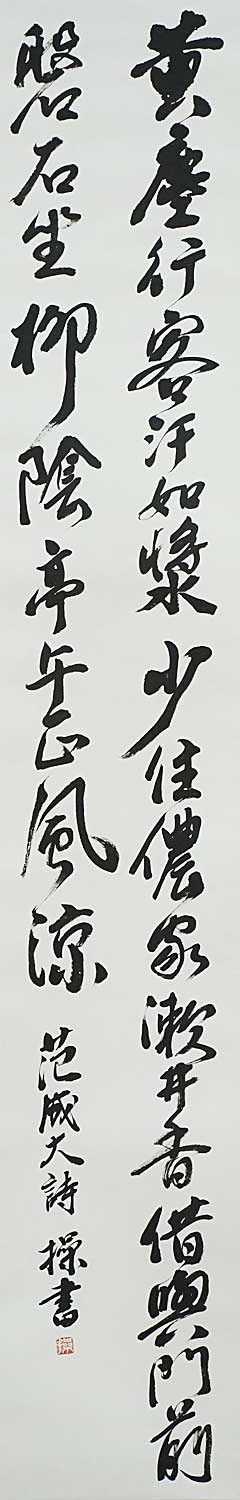 黄塵行客汗如漿少住儂家漱井香借與門前
磐石坐柳陰亭午正風涼
范成大詩 操書